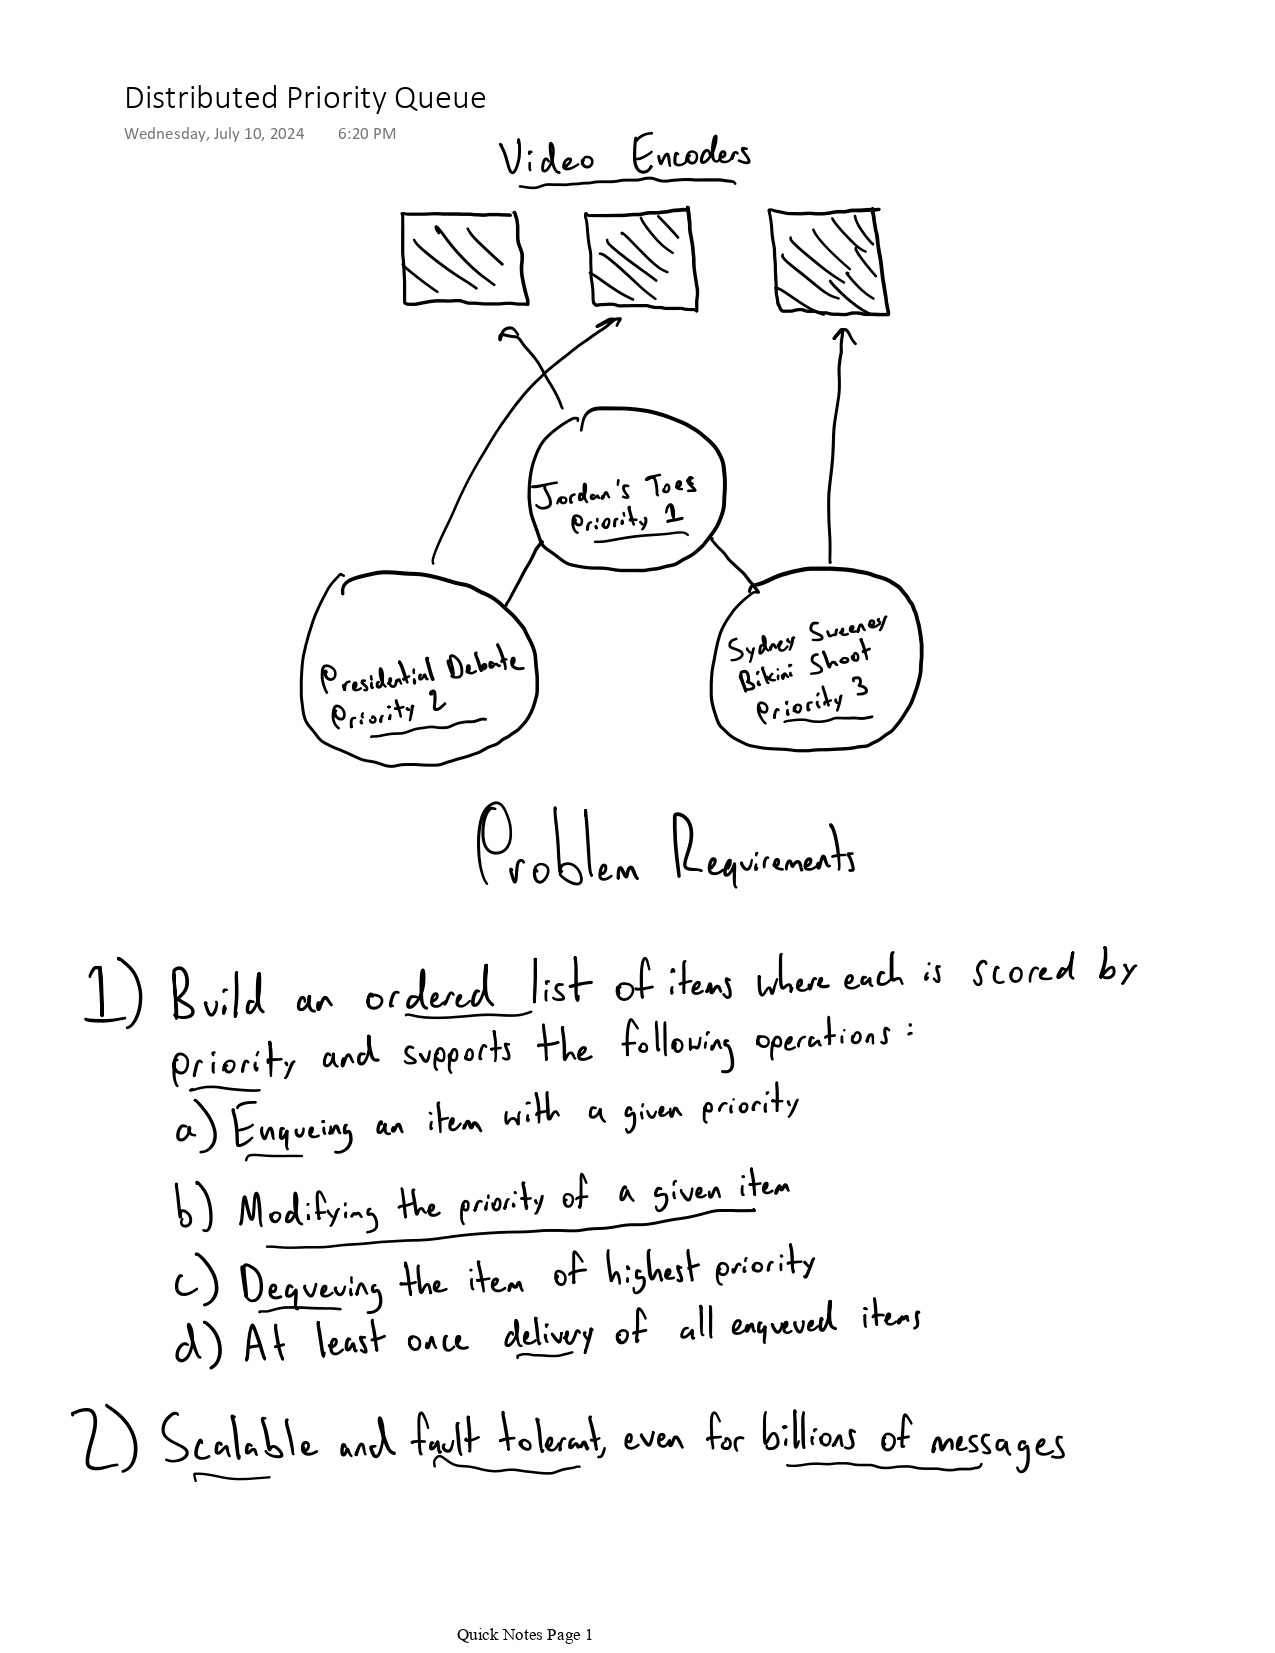 Distributed Priority Queue
Wednesday, July 10, 2024 6:20 PM
Video Encoders
Jordan's Toes
Priority 1
Presidential Debate
Priority 2
Sydney Sweeney
Bikini Shoot
Priority 3
Problem Requirements
1) Build an ordered list of items where each is scored by
priority and supports the following operations:
a) Enqueing an item with a given priority
b) Modifying the priority of a given item
c) Dequeuing the item of highest priority
d) At least once delivery of all enqueued items
2) Scalable and fault tolerant, even for billions of messages
Quick Notes Page 1